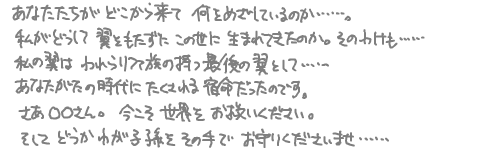 あなたたちが どこから来て 何をめざしているのか……。
私がどうして 翼をもたずに この世に 生まれてきたのか。そのわけも……
私の翼は われらリファ族の持つ 最後の翼として……
あなたがたの時代に たくされる 宿命だったのです。
さあ〇〇さん。今こそ 世界を お救いください。
そして どうか わが子孫を その手で お守りくださいませ……